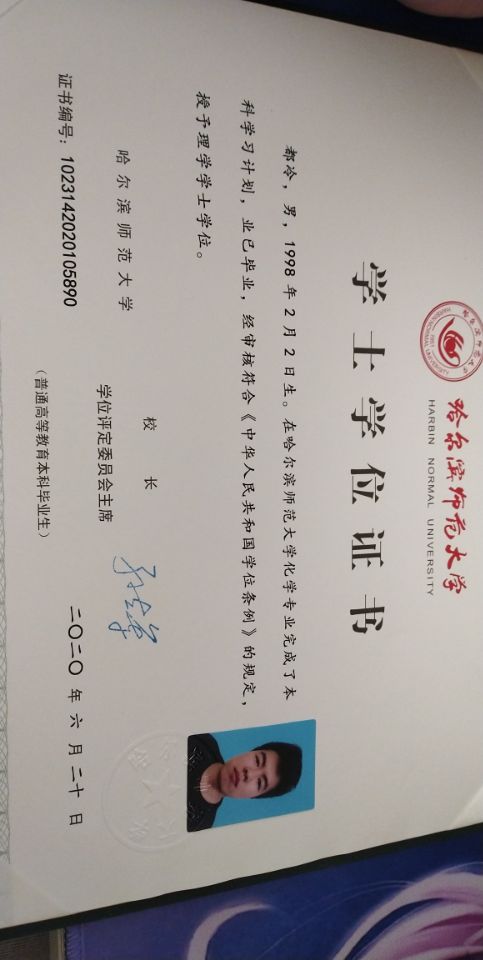 哈尔滨师范大学
HARBIN NORMAL UNIVERSITY
学士学位证书
都冷，男，1998年2月2日生。在哈尔滨师范大学化学专业完成了本
科学习计划，业已毕业，经审核符合《中华人民共和国学位条例》的规定，
授予理学学士学位。
哈尔滨师范大学
校 长
学位评定委员会主席
证书编号：1023142020105890
二〇二〇年六月二十日
（普通高等教育本科毕业生）